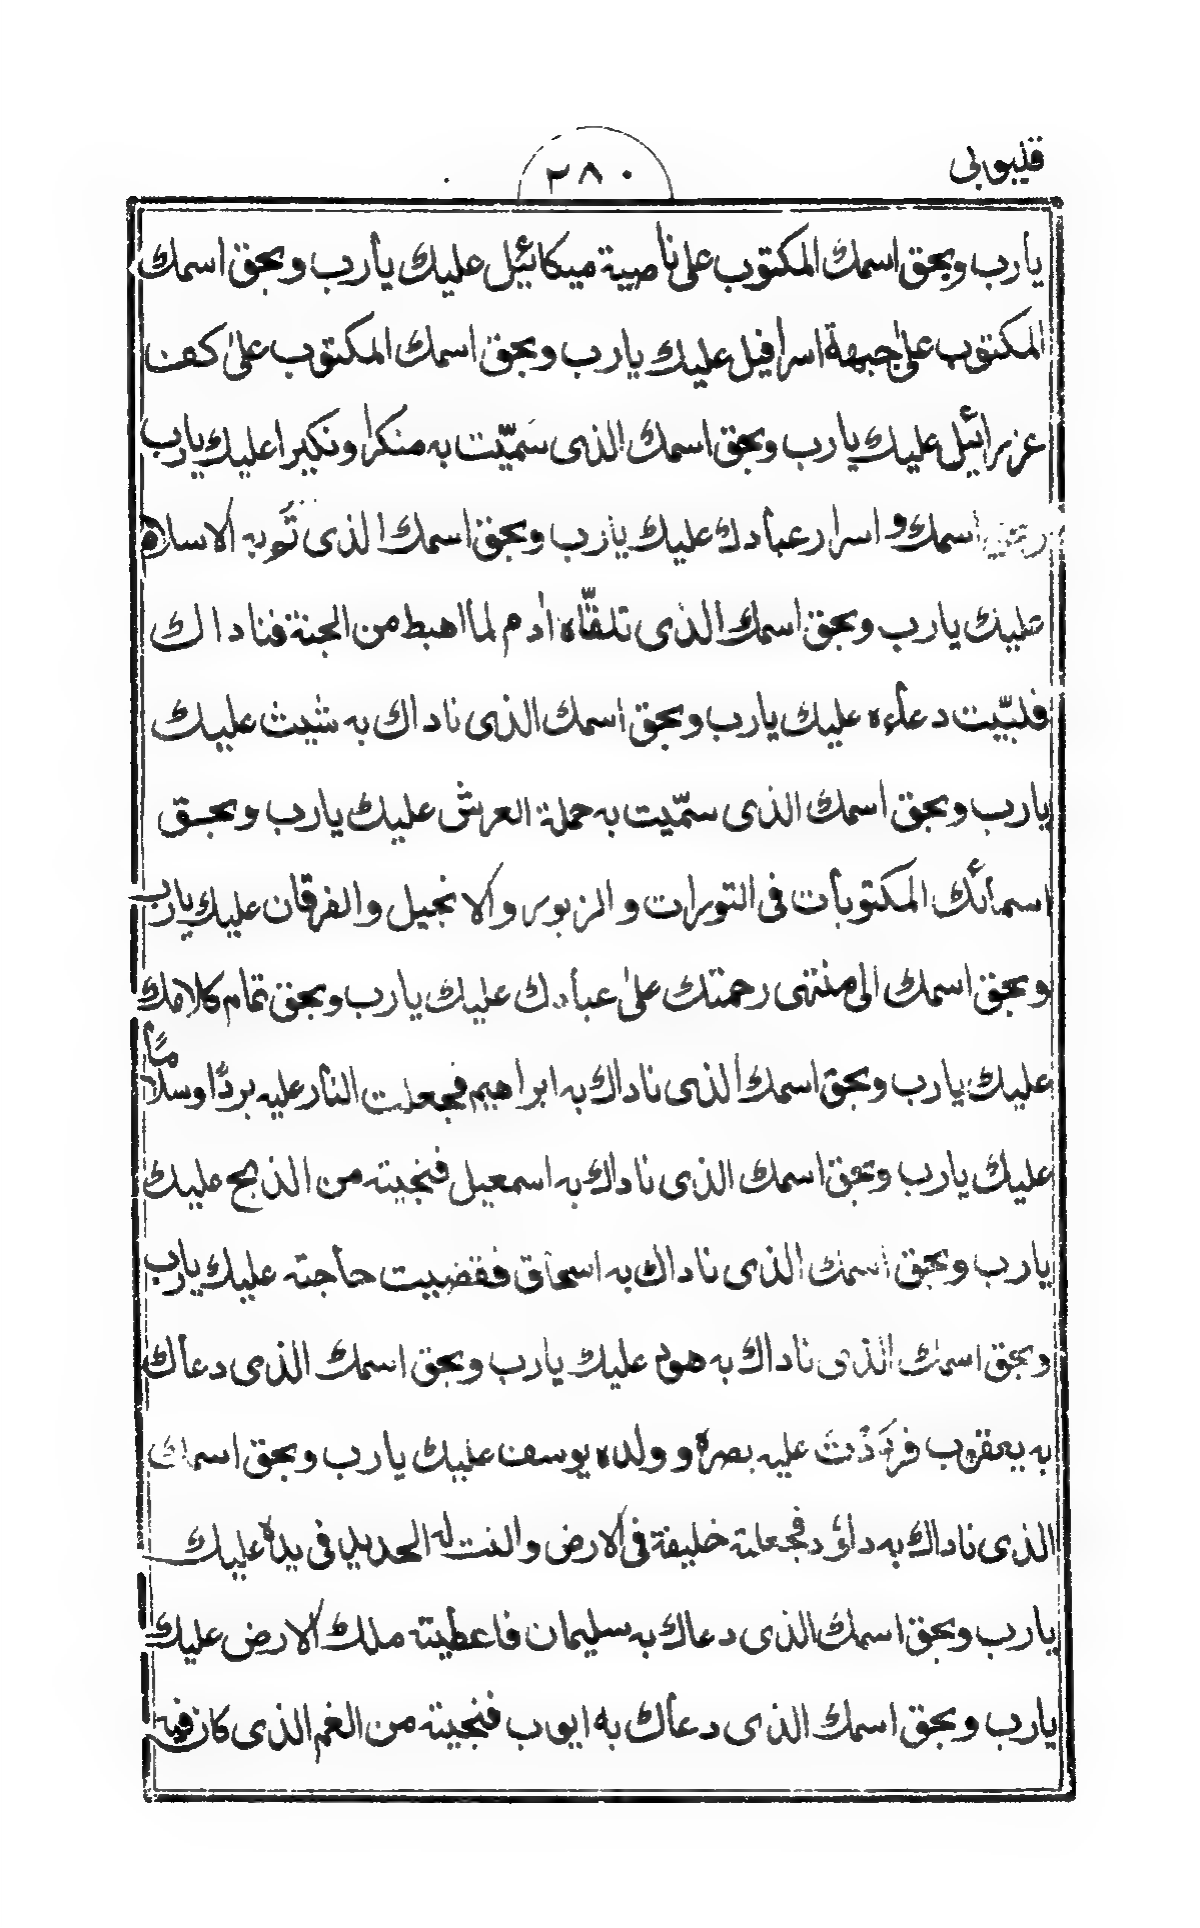 قليوبى
٢٨٠
يارب وبحق اسمك المكتوب على ناصية ميكائيل عليك يارب وبحق اسمك
المكتوب على جبهة اسرافيل عليك يارب وبحق اسمك المكتوب على كف
عزرائيل عليك يارب وبحق اسمك الذى سَمّيت به منكرا ونكيرا عليك يارب
وبحق اسمك و اسرار عبادك عليك يارب وبحق اسمك الذى به الاسلام
عليك يارب وبحق اسمك الذى تلقّاه ادم لما اهبط من الجنة فناداك
فلبّيت دعاءه عليك يارب وبحق اسمك الذى ناداك به شيث عليك
يارب وبحق اسمك الذى سمّيت به حملة العرش عليك يارب وبحق
اسمائك المكتوبات فى التورات و الزبور والانجيل والفرقان عليك يارب
وبحق اسمك الى منتهى رحمتك على عبادك عليك يارب وبحق تمام كلامك
عليك يارب وبحق اسمك الذى ناداك به ابراهيم فجعلت النار عليه بردًا وسلامًا
عليك يارب وبحق اسمك الذى ناداك به اسمعيل فنجيته من الذبح عليك
يارب وبحق اسمك الذى ناداك به اسحاق فقضيت حاجته عليك يارب
وبحق اسمك الذى ناداك به هود عليك يارب وبحق اسمك الذى دعاك
به يعقوب فردَدْتَ عليه بصره و ولده يوسف عليك يارب وبحق اسمك
الذى ناداك به داؤد فجعلته خليفة فى الارض والنت له الحديد فى يده عليك
يارب وبحق اسمك الذى دعاك به سليمان فاعطيته ملك الارض عليك
يارب وبحق اسمك الذى دعاك به ايوب فنجيته من الغم الذى كان فيه